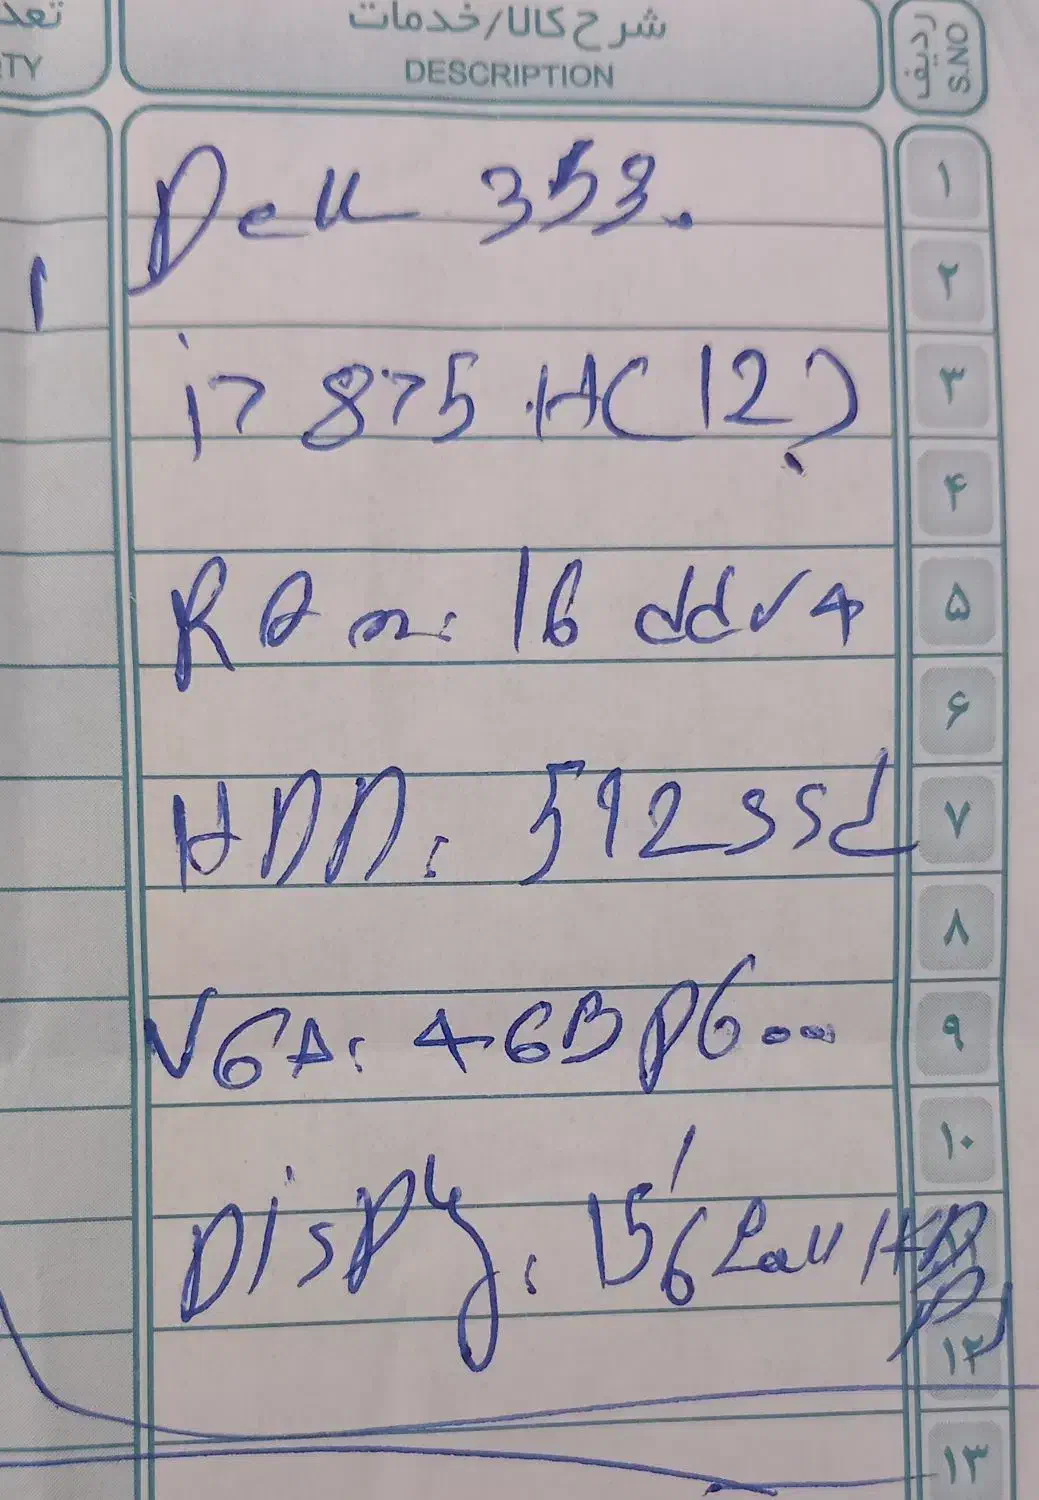 تعد شرح کالا/خدمات ردیف
TY DESCRIPTION S.NO
Dell 353.
۱
۲
1
i7 875.H(12)
۳
۴
RAm: 16 ddr4
۵
۶
HDD: 512 SSd
۷
۸
VGA: 4GB P600
۹
۱۰
DISPly: 15/6 Full HD
۱۲
۱۳